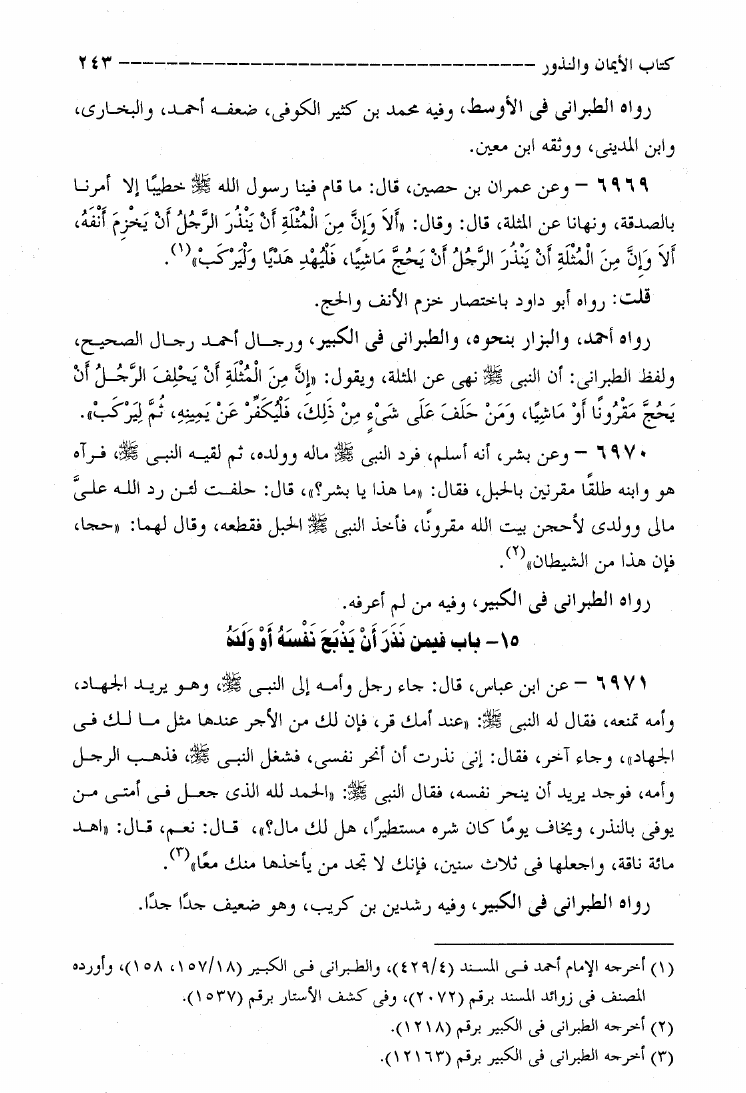 كتاب الأيمان والنذور ----------------------------------- ٢٤٣
رواه الطبرانى فى الأوسط، وفيه محمد بن كثير الكوفى، ضعفه أحمد، والبخارى،
وابن المدينى، ووثقه ابن معين.
٦٩٦٩ – وعن عمران بن حصين، قال: ما قام فينا رسول الله ﷺ خطيبًا إلا أمرنا
بالصدقة، ونهانا عن المثلة، قال: وقال: «أَلاَ وَإِنَّ مِنَ الْمُثْلَةِ أَنْ يَنْذُرَ الرَّجُلُ أَنْ يَخْزِمَ أَنْفَهُ،
أَلاَ وَإِنَّ مِنَ الْمُثْلَةِ أَنْ يَنْذُرَ الرَّجُلُ أَنْ يَحُجَّ مَاشِيًا، فَلْيُهْدِ هَدْيًا وَلْيَرْكَبْ»(١).
قلت: رواه أبو داود باختصار خزم الأنف والحج.
رواه أحمد، والبزار بنحوه، والطبرانى فى الكبير، ورجال أحمد رجال الصحيح،
ولفظ الطبرانى: أن النبى ﷺ نهى عن المثلة، ويقول: «إِنَّ مِنَ الْمُثْلَةِ أَنْ يَحْلِفَ الرَّجُلُ أَنْ
يَحُجَّ مَقْرُونًا أَوْ مَاشِيًا، وَمَنْ حَلَفَ عَلَى شَىْءٍ مِنْ ذَلِكَ، فَلْيُكَفِّرْ عَنْ يَمِينِهِ، ثُمَّ لِيَرْكَبْ».
٦٩٧٠ – وعن بشر، أنه أسلم، فرد النبى ﷺ ماله وولده، ثم لقيه النبى ﷺ، فرآه
هو وابنه طلقًا مقرنين بالحبل، فقال: «ما هذا يا بشر؟»، قال: حلفت لئن رد الله علىَّ
مالى وولدى لأحجن بيت الله مقرونًا، فأخذ النبى ﷺ الحبل فقطعه، وقال لهما: «حجا،
فإن هذا من الشيطان»(٢).
رواه الطبرانى فى الكبير، وفيه من لم أعرفه.
١٥– باب فيمن نَذَرَ أَنْ يَذْبَحَ نَفْسَهُ أَوْ وَلَدَهُ
٦٩٧١ – عن ابن عباس، قال: جاء رجل وأمه إلى النبى ﷺ، وهو يريد الجهاد،
وأمه تمنعه، فقال له النبى ﷺ: «عند أمك قر، فإن لك من الأجر عندها مثل ما لك فى
الجهاد»، وجاء آخر، فقال: إنى نذرت أن أنحر نفسى، فشغل النبى ﷺ، فذهب الرجل
وأمه، فوجد يريد أن ينحر نفسه، فقال النبى ﷺ: «الحمد لله الذى جعل فى أمتى من
يوفى بالنذر، ويخاف يومًا كان شره مستطيرًا، هل لك مال؟»، قال: نعم، قال: «اهد
مائة ناقة، واجعلها فى ثلاث سنين، فإنك لا تجد من يأخذها منك معًا»(٣).
رواه الطبرانى فى الكبير، وفيه رشدين بن كريب، وهو ضعيف جدًا جدًا.
(١) أخرجه الإمام أحمد فى المسند (٤٢٩/٤)، والطبرانى فى الكبير (١٥٧/١٨، ١٥٨)، وأورده
المصنف فى زوائد المسند برقم (٢٠٧٢)، وفى كشف الأستار برقم (١٥٣٧).
(٢) أخرجه الطبرانى فى الكبير برقم (١٢١٨).
(٣) أخرجه الطبرانى فى الكبير برقم (١٢١٦٣).